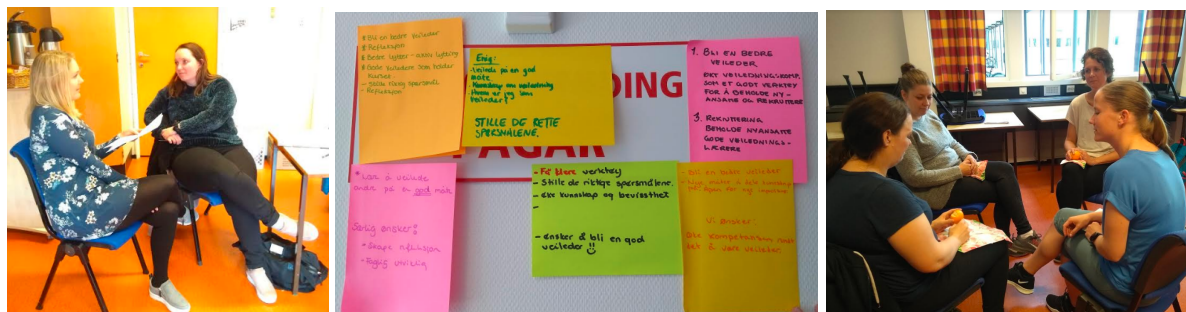 * Bli en bedre veileder
* Refleksjon
* Bedre lytter - aktiv lytting
* Gode veiledere som holder
kurset.
- Stille riktig spørsmål
- Refleksjon
Enig!
på en god
måte
Kunnskap om veiledning
Hvem er jeg som
veileder?
STILLE DE RETTE
SPØRSMÅLENE.
DING
1. BLI EN BEDRE
VEILEDER
ØKT VEILEDNINGSKOMP.
SOM ET GODT VERKTØY
FOR Å BEHOLDE NY-
ANSATTE OG REKRUTTERE
3. REKRUTTERING
BEHOLDE NYANSATTE
GODE VEILEDNINGS-
LÆRERE
FAGAR
* Lær å veilede
andre på en god måte
Særlig ønsker!
* Skape refleksjon
- Faglig utvikling
- Få flere verktøy
- Stille de riktige spørsmålene.
- økt kunnskap og bevissthet
-
- Ønsker å bli en god
veileder !!
- Bli en bedre veileder
Vi ønsker:
Øke kompetansen rundt
det å være veileder.